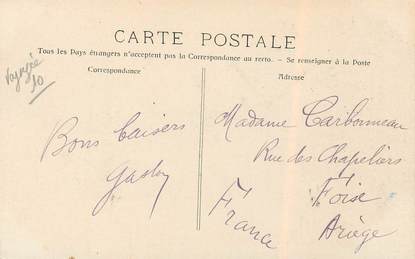 CARTE POSTALE
Tous les Pays étrangers n'acceptent pas la Correspondance au recto. — Se renseigner à la Poste
Correspondance
Adresse
Voyagée
10
Bons baisers
Gaston
Madame Carbonneau
Rue des Chapeliers
Foix
Ariège
France